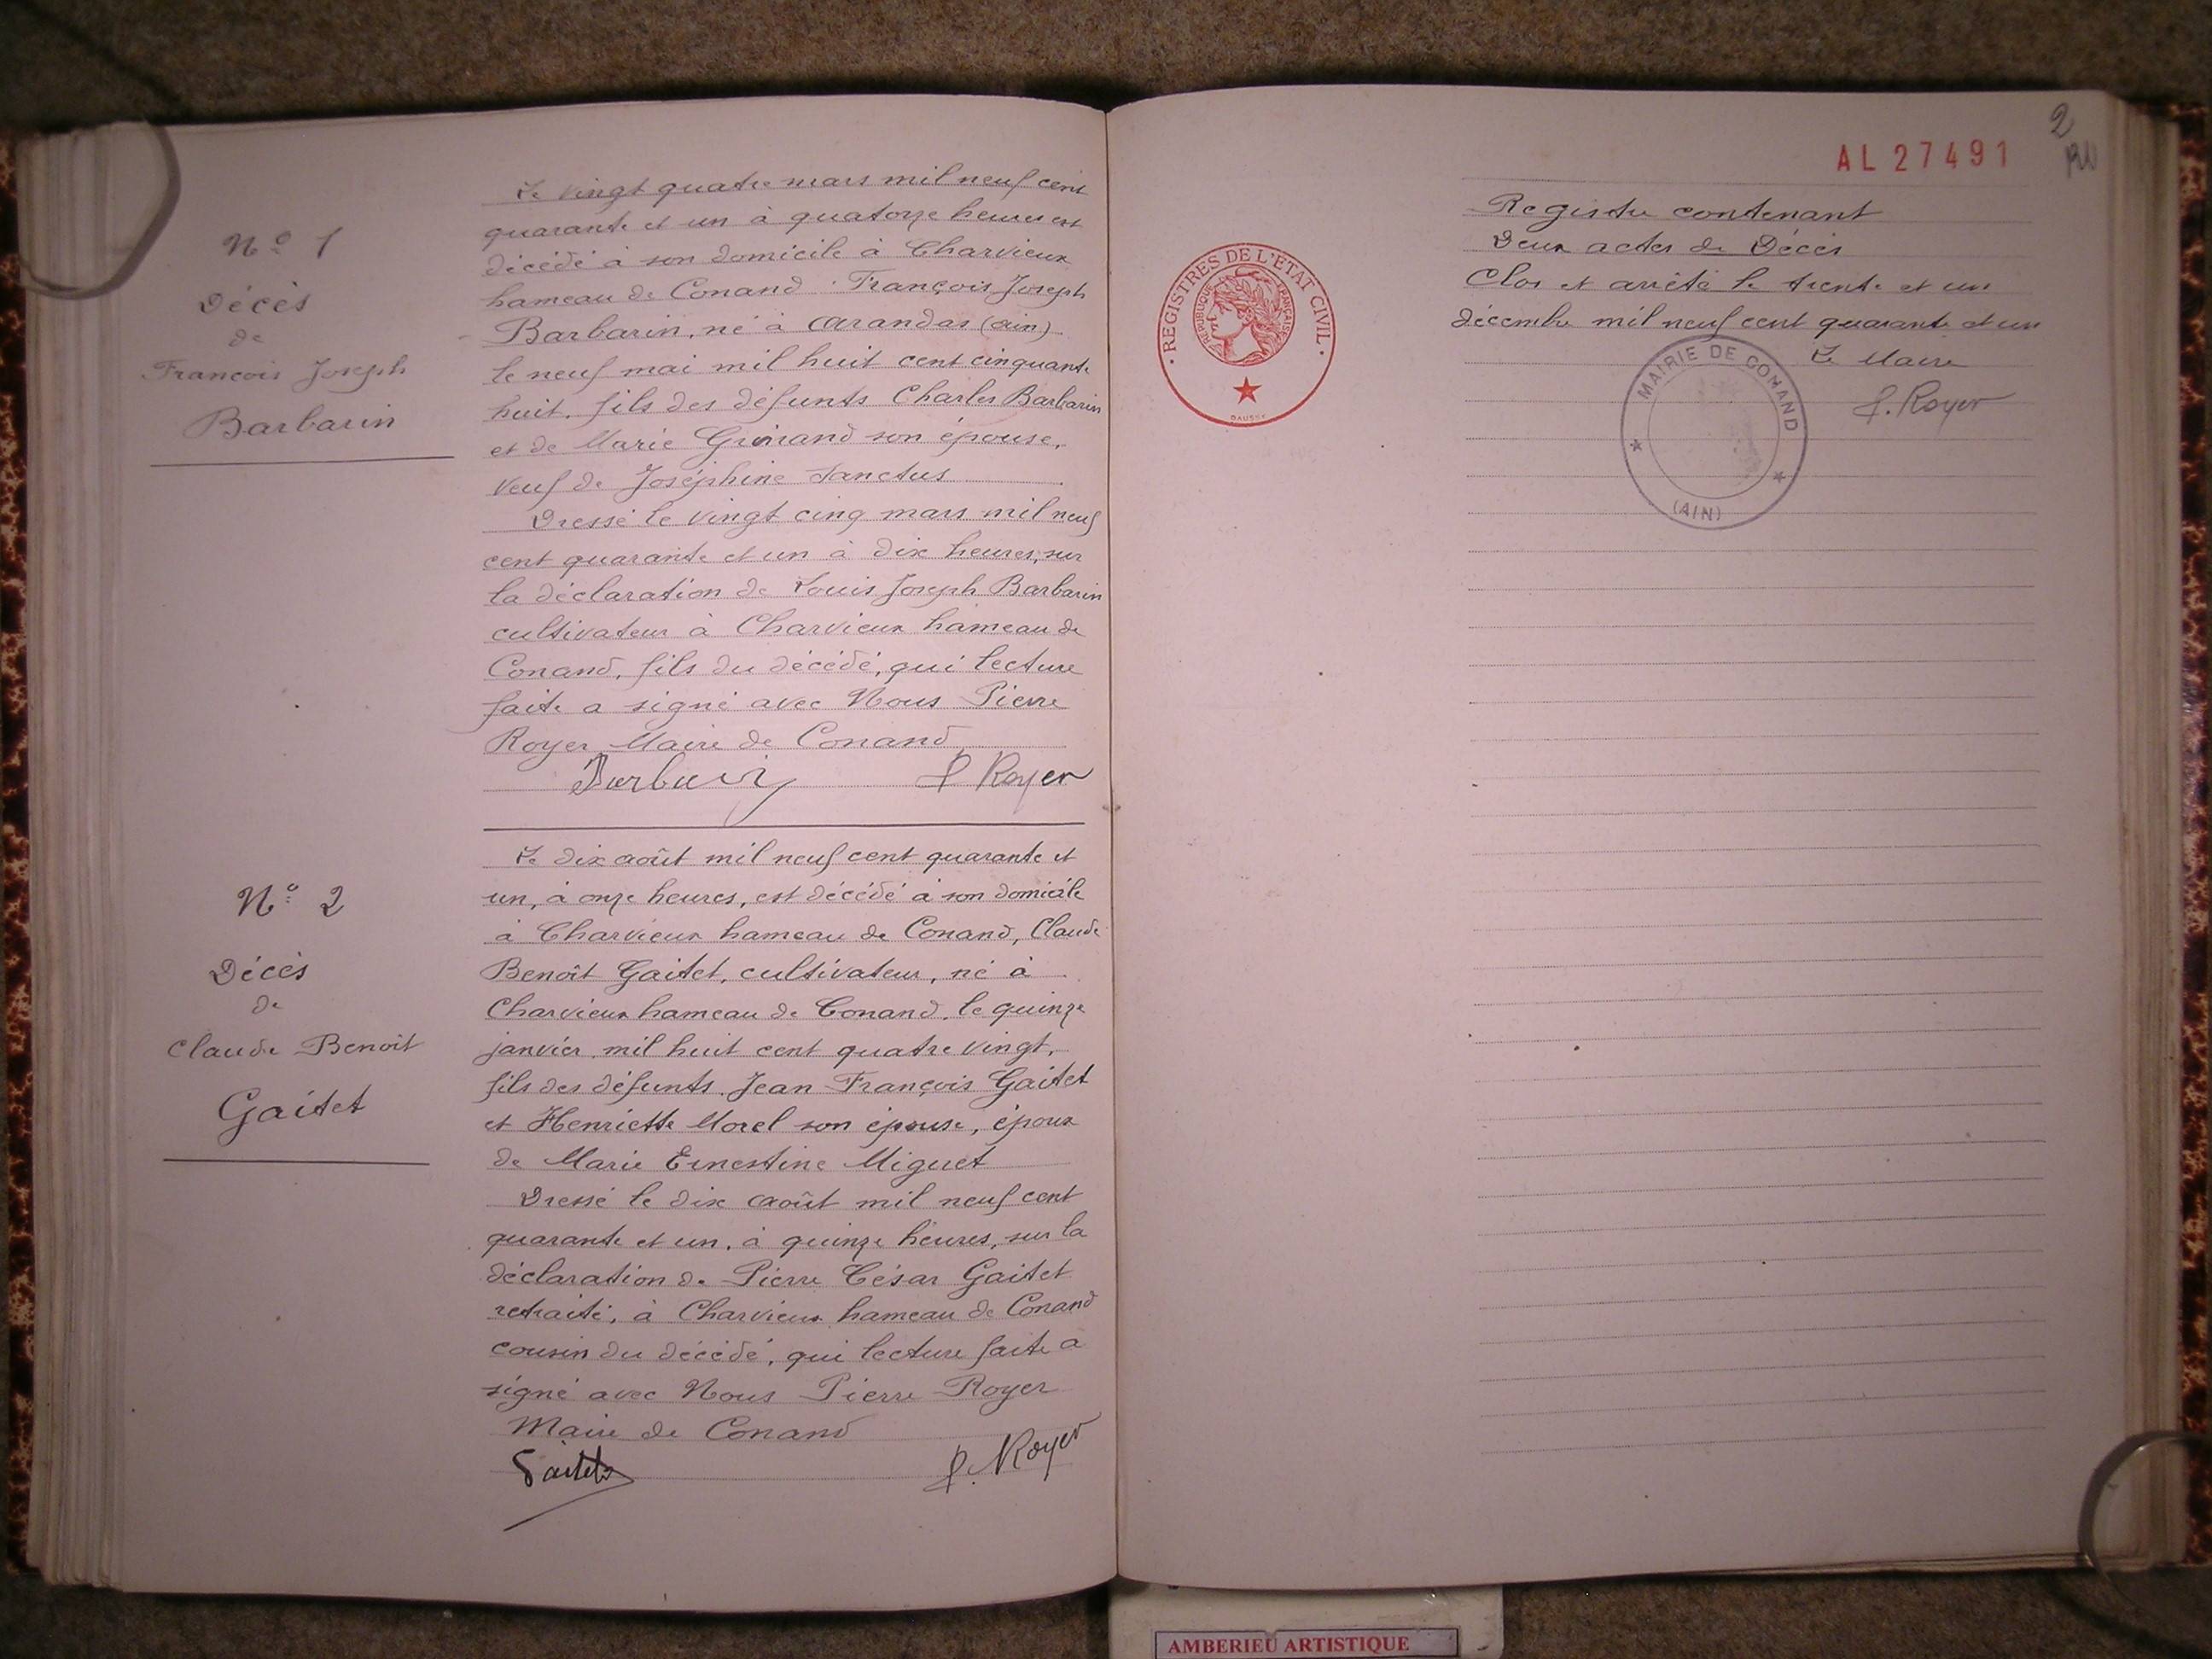 N° 1
Décès
de
François Joseph
Barbarin
Le vingt quatre mars mil neuf cent
quarante et un à quatorze heures est
décédé à son domicile à Charvieux
hameau de Conand. François Joseph
Barbarin, né à Arandas (Ain)
le neuf mai mil huit cent cinquante
huit, fils des défunts Charles Barbarin
et de Marie son épouse,
veuf de Joséphine Sanctus
Dressé le vingt cinq mars mil neuf
cent quarante et un à dix heures, sur
la déclaration de Louis Joseph Barbarin
cultivateur à Charvieux hameau de
Conand, fils du décédé, qui lecture
faite a signé avec Nous Pierre
Royer Maire de Conand
Barbarin P Royer
N° 2
Décès
de
Claude Benoît
Gaitet
Le dix août mil neuf cent quarante et
un, à onze heures, est décédé à son domicile
à Charvieux hameau de Conand, Claude
Benoît Gaitet, cultivateur, né à
Charvieux hameau de Conand, le quinze
janvier mil huit cent quatre vingt,
fils des défunts Jean François Gaitet
et Henriette Morel son épouse, époux
de Marie Ernestine Miguet
Dressé le dix août mil neuf cent
quarante et un, à quinze heures, sur la
déclaration de Pierre César Gaitet
retraité, à Charvieux hameau de Conand
cousin du décédé, qui lecture faite a
signé avec Nous Pierre Royer
Maire de Conand
Gaitet P. Royer
2
AL 27491
Registre contenant
Deux actes de Décès
Clos et arrêté le trente et un
décembre mil neuf cent quarante et un
Le Maire
P. Royer
MAIRIE DE CONAND
(AIN)
REGISTRES DE L'ÉTAT CIVIL
RÉPUBLIQUE FRANÇAISE
AMBERIEU ARTISTIQUE